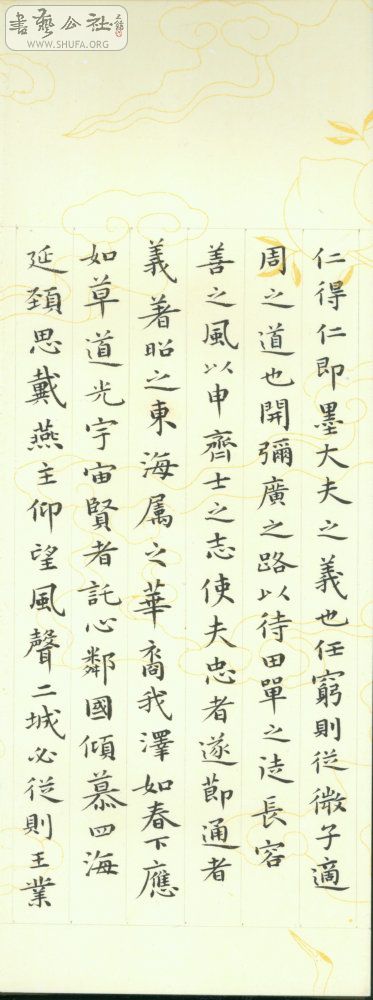 書藝公社
WWW.SHUFA.ORG
仁得仁即墨大夫之義也任窮則從微子適
周之道也開彌廣之路以待田單之徒長容
善之風以申齊士之志使夫忠者遂節通者
義著昭之東海属之華裔我澤如春下應
如草道光宇宙賢者託心鄰國傾慕四海
延頸思戴燕主仰望風聲二城必從則王業